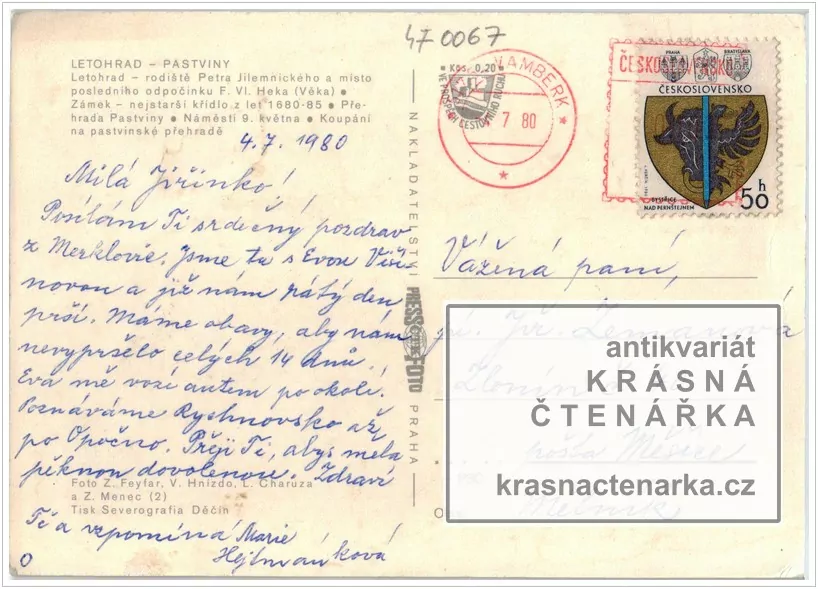 4F 0067
LETOHRAD – PASTVINY
Letohrad – rodiště Petra Jilemnického a místo
posledního odpočinku F. Vl. Heka (Věka) •
Zámek - nejstarší křídlo z let 1680-85 • Pře-
hrada Pastviny • Náměstí 9. května • Koupání
na pastvinské přehradě
4.7. 1980
Milá Jiřinko!
Posílám Ti srdečný pozdrav
z Merklovic. Jsme tu s Evou Višň
novou a již nám pátý den
prší. Máme obavy, aby nám
nevypršelo celých 14 dnů.
Eva mě vozí autem po okolí.
Poznáváme Rychnovsko až
po Opočno. Přeji Ti, abys mela
pěknou dovolenou. Zdraví
Foto Z. Feyfar, V. Hnízdo, L. Charuza
a Z. Menec (2)
Tisk Severografia Děčín
Tě a vzpomíná Marie
Hejlmánková
O
NAKLADATELSTVÍ PRESSFOTO PRAHA
Kčs 0,20
VE PROSPĚCH CESTOVNÍHO RUCHU
VAMBERK
7 80
ČESKOSLOVENSKO
PRAHA
BRATISLAVA
ČESKOSLOVENSKO
BYSTŘICE
NAD PERNŠTEJNEM
50 h
Vážená paní,
pí. Jiř. Zemanová
Zlonín
pošta Měšice
Mělník
antikvariát
KRÁSNÁ
ČTENÁŘKA
krasnactenarka.cz